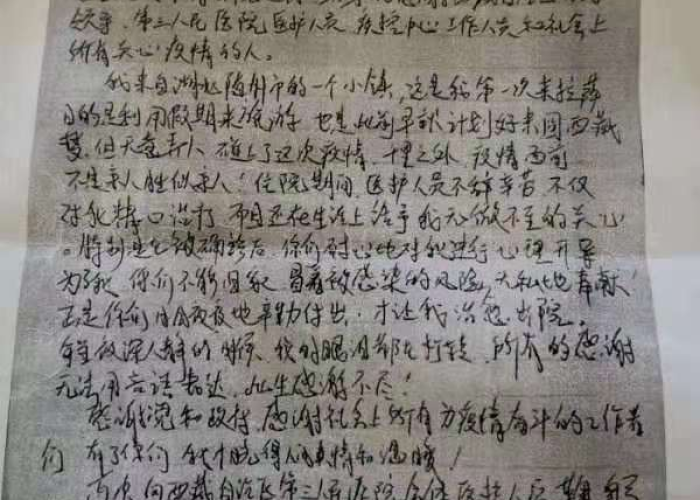 天亭、第三人民医院医护人员、疾控中心工作人员和社会上
所有关心疫情的人。
我来自湖北随州市的一个小镇,这是我第一次来拉萨
目的是利用假期来旅游,也是此前早就计划好来圆西藏
梦,但天意弄人,碰上了这次疫情,千里之外,疫情面前
不是亲人胜似亲人!住院期间,医护人员不辞辛苦,不仅
对我精心治疗,而且还在生活上给予我无微不至的关心
。特别是被确诊后,你们耐心地对我进行心理开导
为了我,你们不能回家,冒着被感染的风险,无私地奉献
正是你们日日夜夜地辛勤付出,才让我治愈出院。
夜深人静的时候,我的眼泪都在打转,所有的感谢
无法用言语表达,此生感谢不尽!
感谢党和政府,感谢社会上所有为疫情奋斗的工作者
们 有了你们 我才晓得人间真情和温暖!
再次向西藏自治区第三人民医院全体医护人员